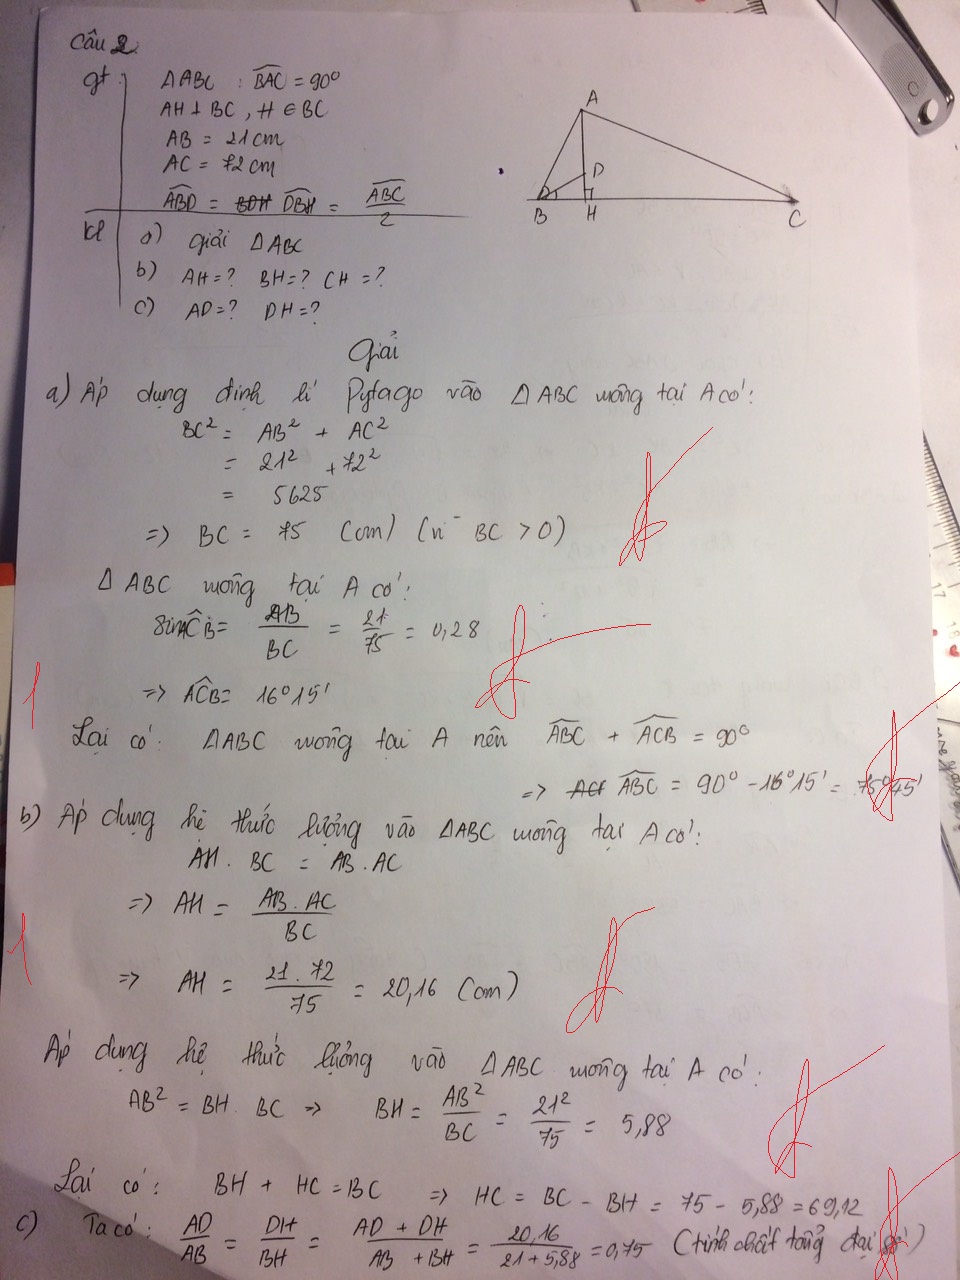 Câu 2.
gt ΔABC : BAC = 90°
AH ⊥ BC, H ∈ BC
AB = 21 cm
AC = 72 cm
ABD = DBH = ABC/2
kl a) giải ΔABC
b) AH = ? BH = ? CH = ?
c) AD = ? DH = ?
A
D
B H C
Giải
a) Áp dụng định lí Pytago vào ΔABC vuông tại A có:
BC² = AB² + AC²
= 21² + 72²
= 5625
=> BC = 75 (cm) (vì BC > 0)
ΔABC vuông tại A có:
sin ACB = AB/BC = 21/75 = 0,28
=> ACB = 16°15'
1
Lại có: ΔABC vuông tại A nên ABC + ACB = 90°
=> ABC = 90° - 16°15' = 75°45'
b) Áp dụng hệ thức lượng vào ΔABC vuông tại A có:
AH . BC = AB . AC
=> AH = AB . AC/BC
1
=> AH = 21 . 72/75 = 20,16 (cm)
Áp dụng hệ thức lượng vào ΔABC vuông tại A có:
AB² = BH . BC => BH = AB²/BC = 21²/75 = 5,88
Lại có: BH + HC = BC => HC = BC - BH = 75 - 5,88 = 69,12
c) Ta có: AD/AB = DH/BH = AD + DH/AB + BH = 20,16/21 + 5,88 = 0,75 (tính chất